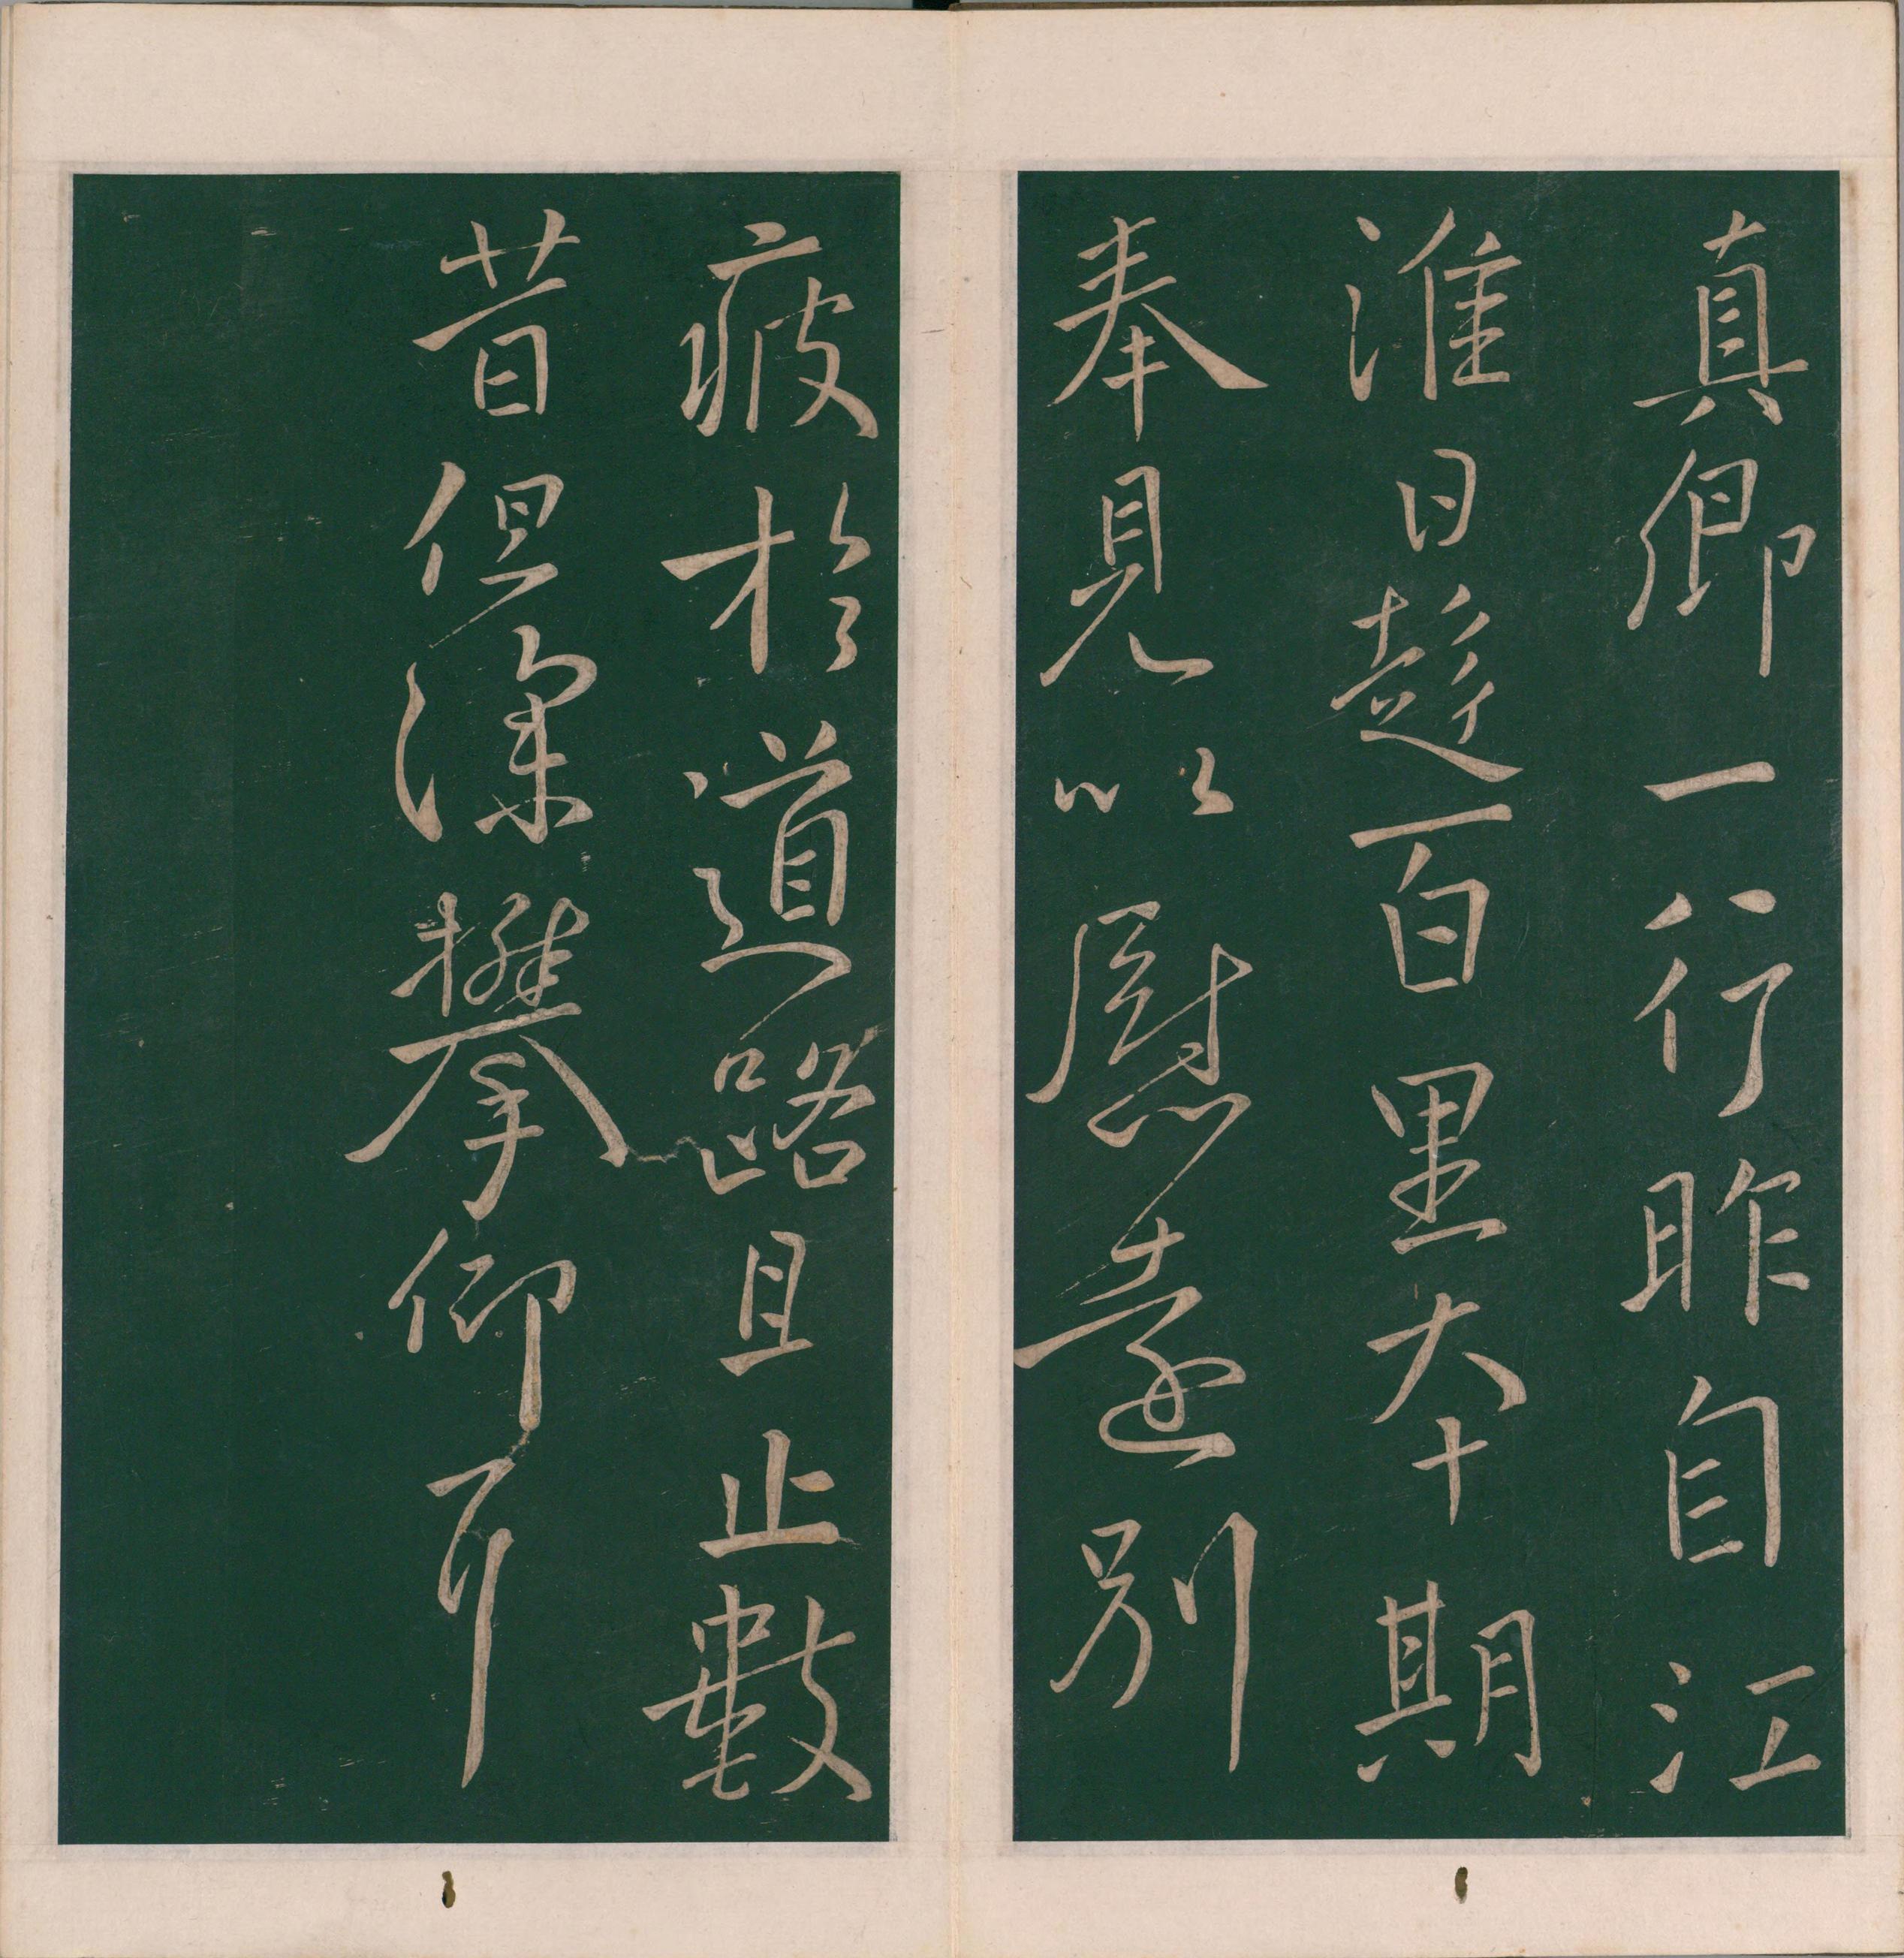 真卿一行昨自江
淮日趍百里大十期
奉見以慰遠別
疲於道路且止數
昔但深攀仰耳